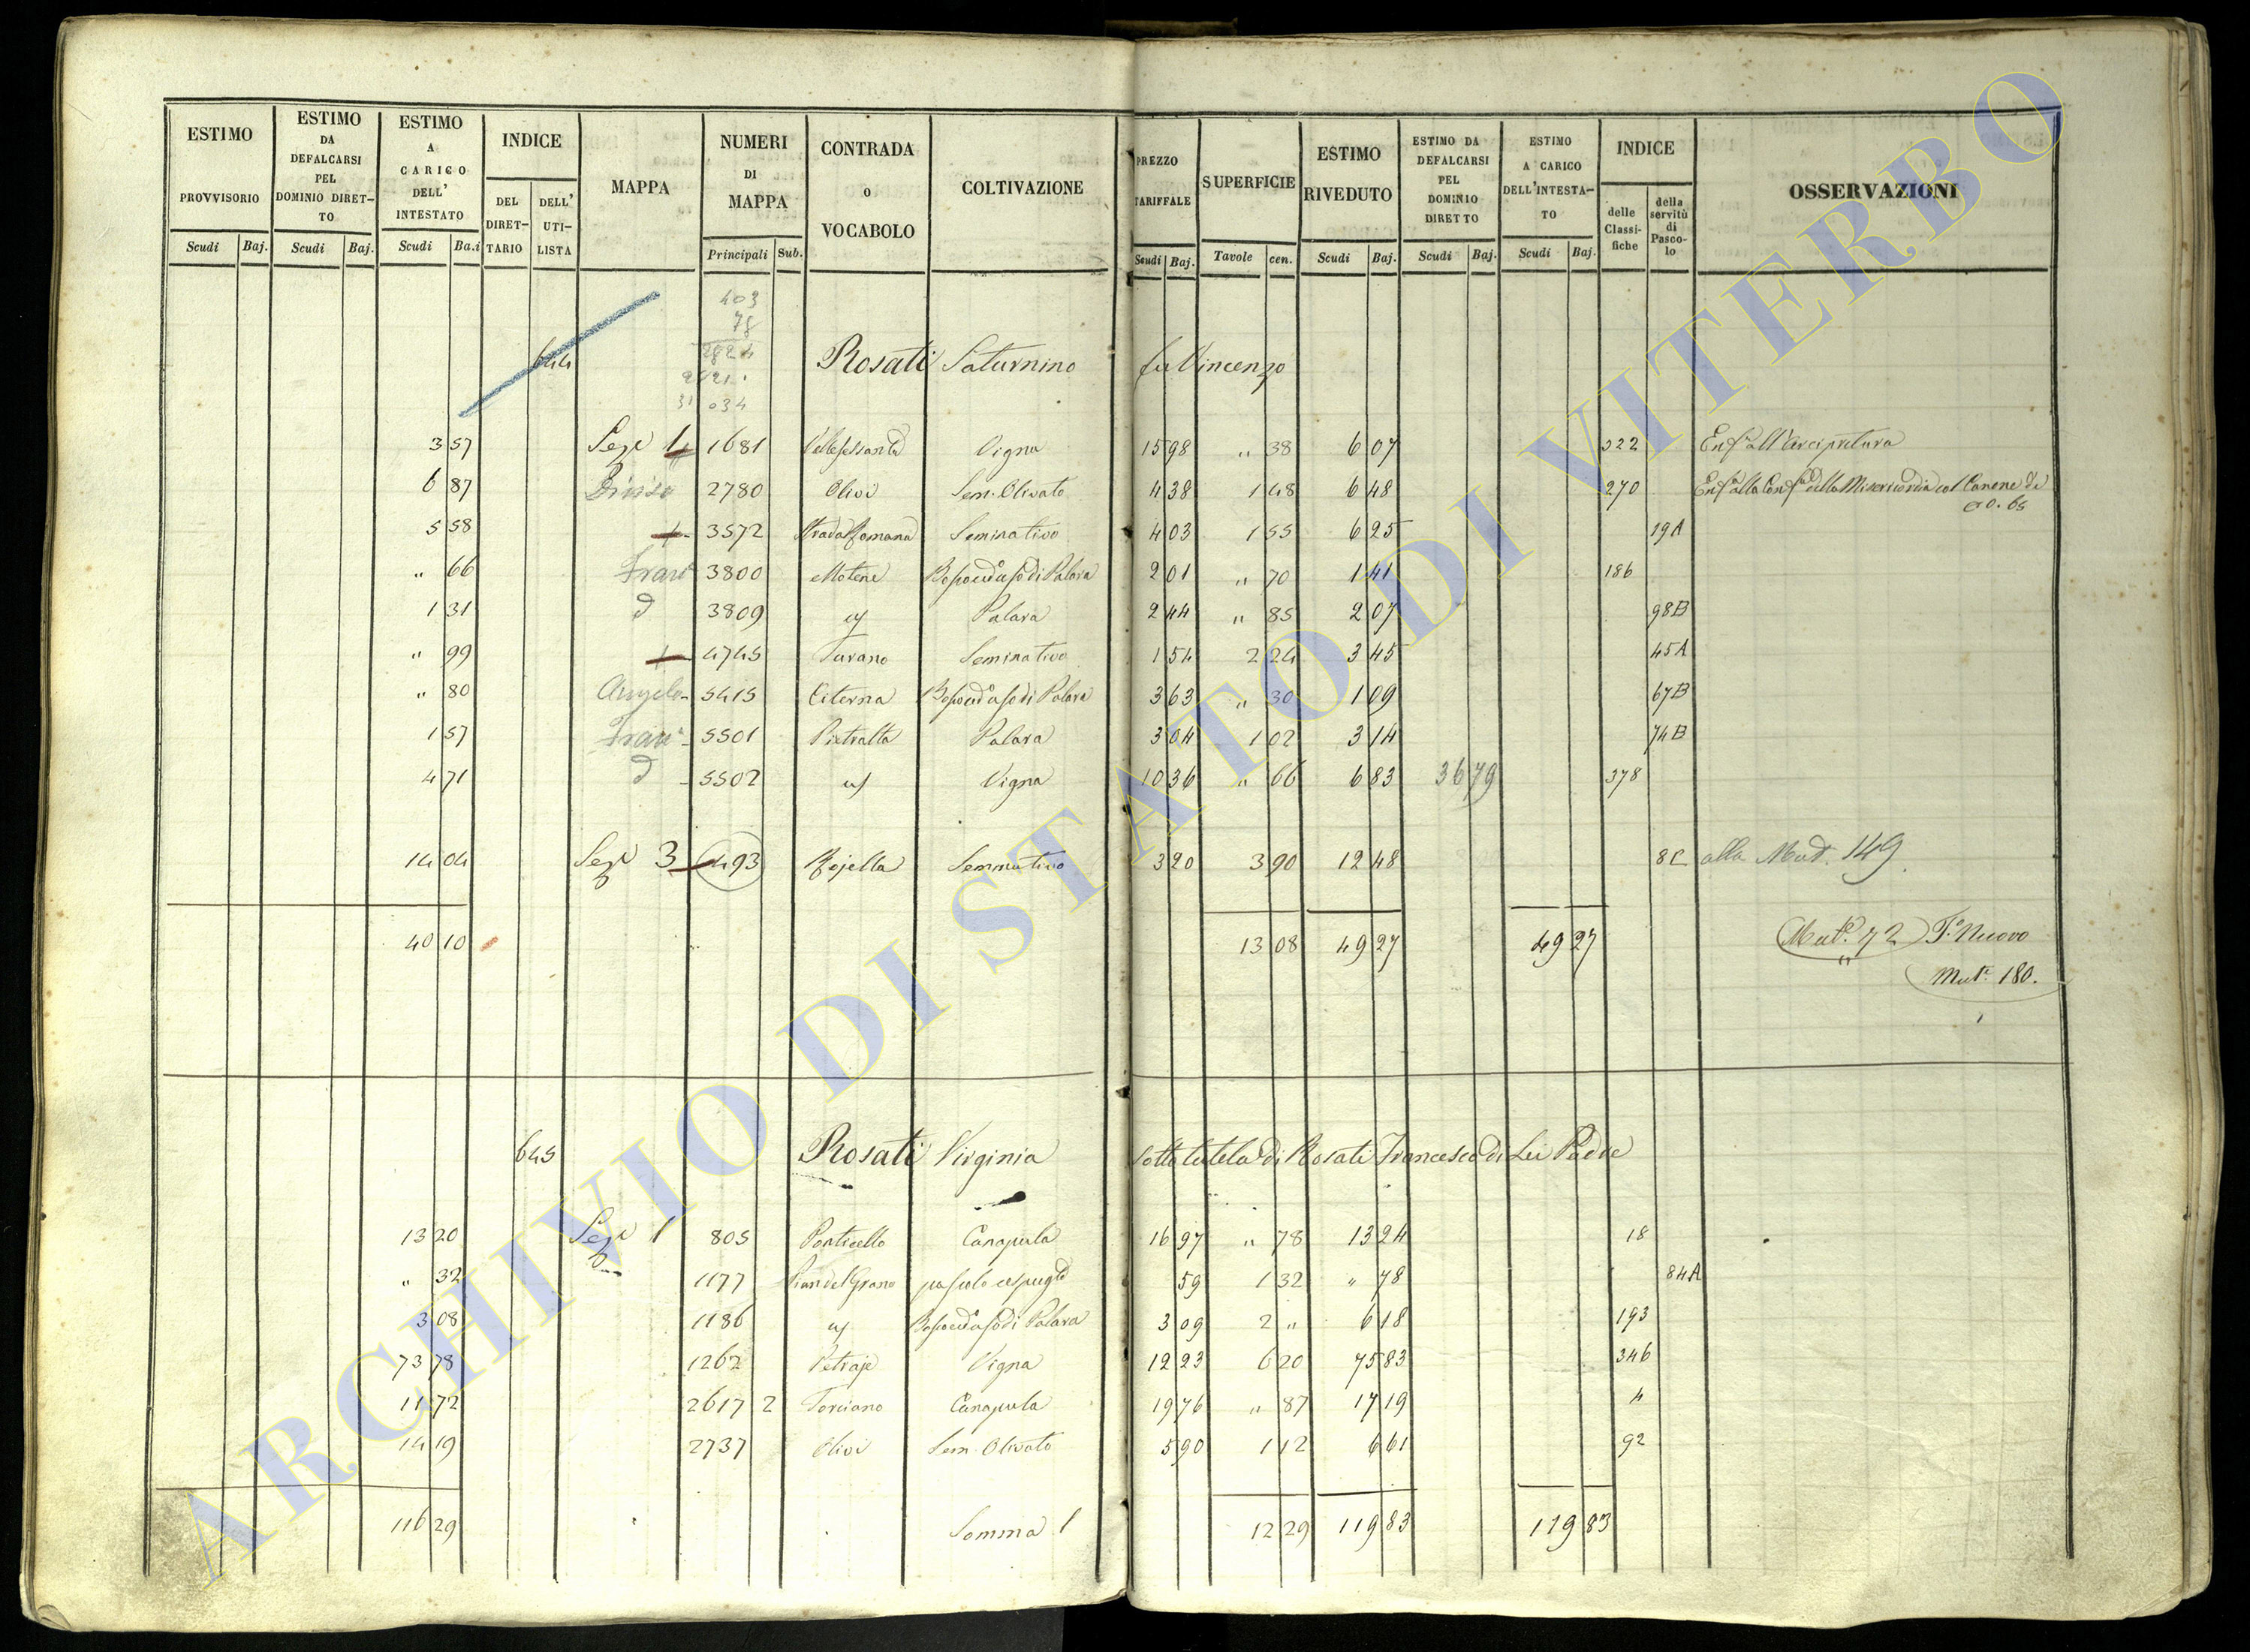 ESTIMO PROVVISORIO Scudi Baj.
ESTIMO DA DEFALCARSI PEL DOMINIO DIRET-TO Scudi Baj.
ESTIMO A CARICO DELL' INTESTATO Scudi Ba.i
INDICE DEL DIRET-TARIO DELL' UTI-LISTA
MAPPA
NUMERI DI MAPPA Principali Sub.
CONTRADA o VOCABOLO
COLTIVAZIONE
PREZZO TARIFFALE Scudi Baj.
SUPERFICIE Tavole cen.
ESTIMO RIVEDUTO Scudi Baj.
ESTIMO DA DEFALCARSI PEL DOMINIO DIRETTO Scudi Baj.
ESTIMO A CARICO DELL'INTESTA-TO Scudi Baj.
INDICE delle Classi-fiche della servitù di Pasco-lo
OSSERVAZIONI
403
78
2824
2421
31 034
644 Rosati Saturnino fu Vincenzo
3 57 Sez.e 4 1681 Vigna 15 98 " 38 6 07 322 Enf.a all'Arcipretura
6 87 Diviso 2780 Olivi Sem. Olivato 4 38 1 48 6 48 270 Enf.a alla Conf.a della Misericordia col Canone di
0.65
5 58 3572 Strada Romana Seminativo 4 03 1 55 6 25 19A
" 66 Fran 3800 Motene Bosco ced.o a so di Palara 2 01 " 70 1 41 186
1 31 d 3809 Palara 2 44 " 85 2 07 98B
" 99 4745 Turano Seminativo 1 54 2 24 3 45 45A
" 80 Angelo 5415 Citerna Bosco ced.o a so di Palara 3 63 " 30 1 09 67B
1 57 Fran 5501 Pietralta Palara 3 04 1 02 3 14 74B
4 71 d 5502 Vigna 10 36 " 66 6 83 36 79 378
14 04 Sez.e 3 493 Rojella Seminativo 3 20 3 90 12 48 8C alla Mut. 149.
40 10 13 08 49 27 49 27 Mut.e 72 T.o Nuovo
Mut.e 180.
645 Rosati Virginia sotto tutela di Rosati Francesco di Lei Padre
13 20 Sez.e 1 805 Ponticello Canapula 16 97 " 78 13 24 18
" 32 1177 Pian del Grano pascolo cespugl.to 59 1 32 " 78 84A
3 08 1186 Bosco ced.o a so di Palara 3 09 2 " 6 18 193
73 78 1262 Petraje Vigna 12 23 6 20 75 83 346
11 72 2617 2 Torciano Canapula 19 76 " 87 17 19 4
14 19 2737 Olivi Sem. Olivato 5 90 1 12 6 61 92
116 29 Somma 12 29 119 83 119 83
ARCHIVIO DI STATO DI VITERBO